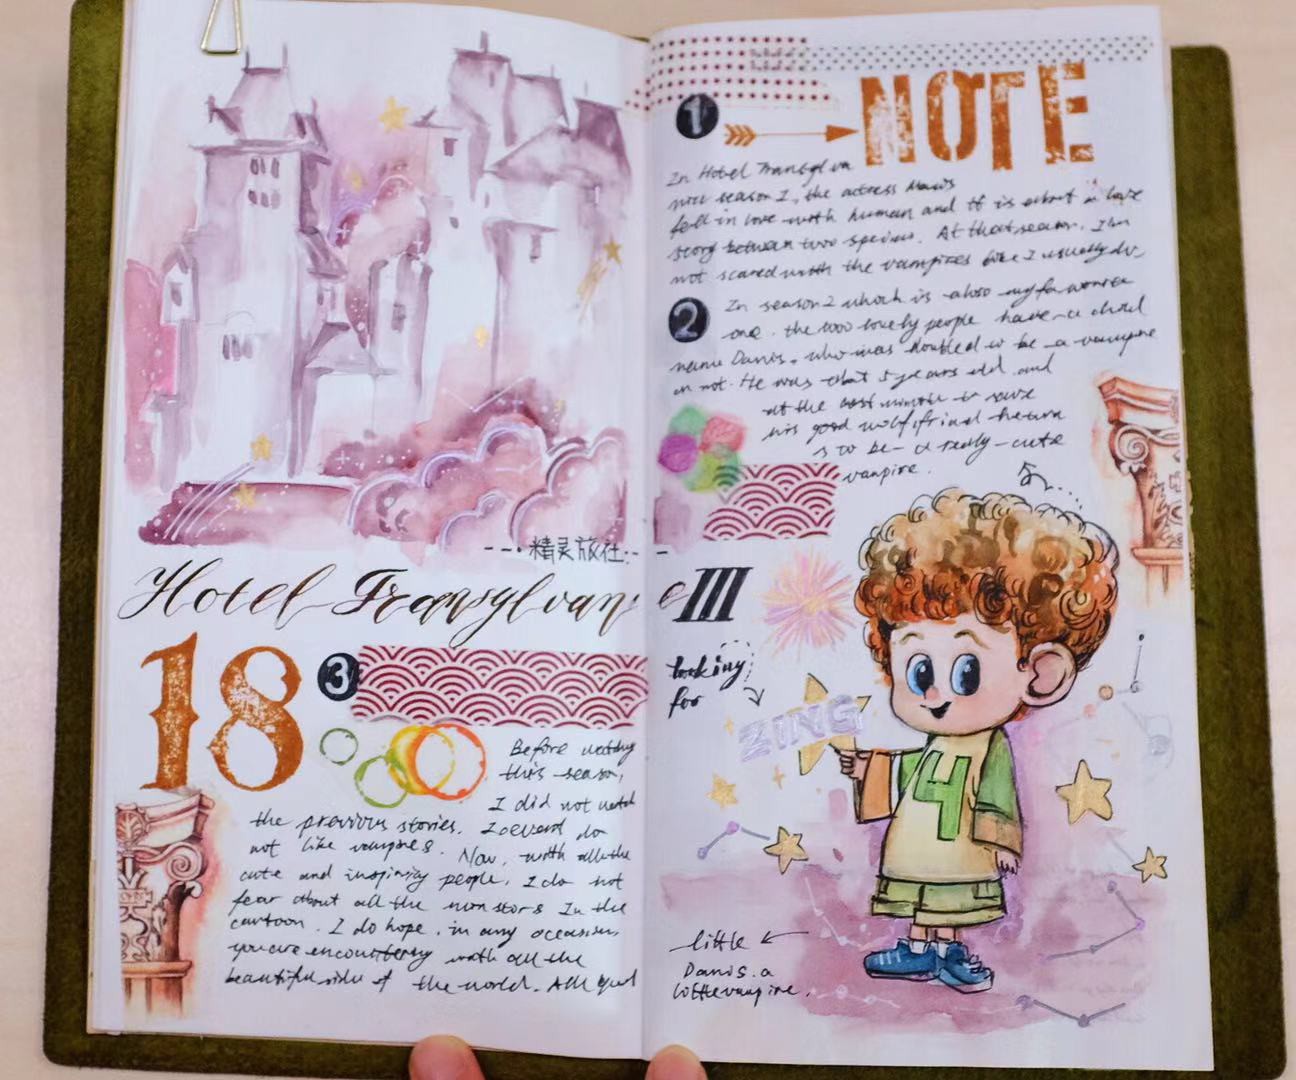 精灵旅社
Hotel Transylvan
18
3
Before
this season,
I did not watch
the previous stories. I do
not like vampires. Now, with all the
cute and inspiring people, I do not
fear about all the monstors In the
cartoon. I do hope, in any occasion,
you are encountering with all the
beautiful side of the world. All
1
NOTE
In Hotel Transylva
season 1, the actress Mavis
fell in love with human and it is about a love
story between two species. At that season, I am
not scared with the vampires like I usually do.
2
In season 2 which is also my favourite
one. the two lovely people have a child
name Danis, who was doubted to be a vampire
or not. He was that 5 years old and
at the last minute to save
his good wolf friend he turn
s to be a really cute
vampire.
e III
looking
for
ZING
4
little
Danis. a
little vampire.